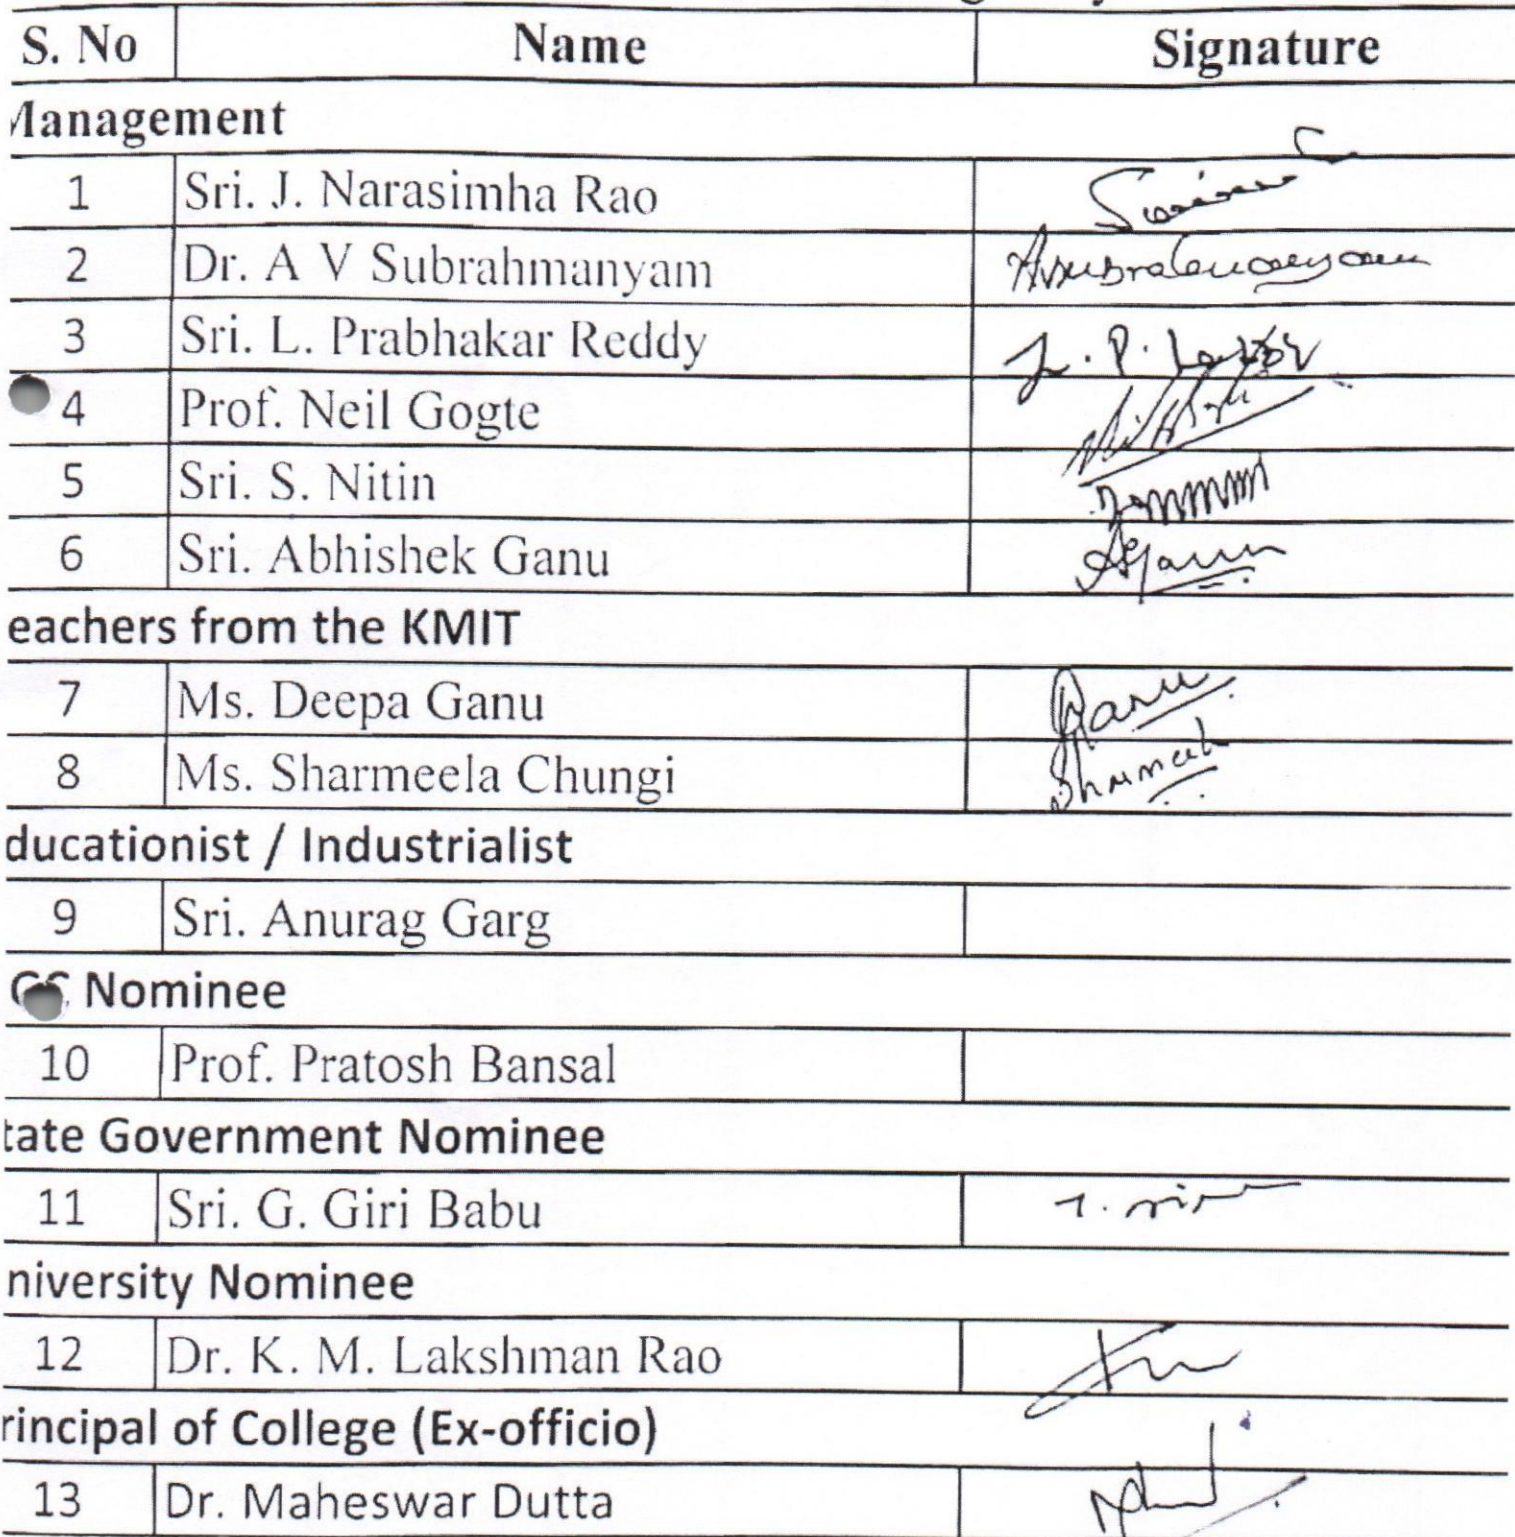 S. No Name Signature
Management
1 Sri. J. Narasimha Rao
2 Dr. A V Subrahmanyam Avsubrahmanyam
3 Sri. L. Prabhakar Reddy L. P.
4 Prof. Neil Gogte
5 Sri. S. Nitin
6 Sri. Abhishek Ganu AGanu
eachers from the KMIT
7 Ms. Deepa Ganu Ganu
8 Ms. Sharmeela Chungi Sharmeela
ducationist / Industrialist
9 Sri. Anurag Garg
Nominee
10 Prof. Pratosh Bansal
tate Government Nominee
11 Sri. G. Giri Babu
niversity Nominee
12 Dr. K. M. Lakshman Rao
rincipal of College (Ex-officio)
13 Dr. Maheswar Dutta